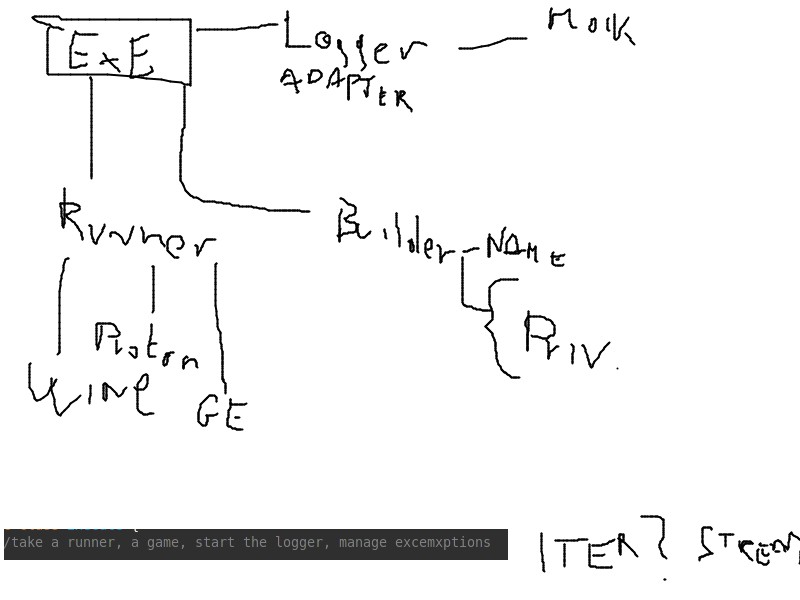 ExE
Logger
ADAPTER
MOIK
Runner
Builder - NAME
Priv.
Proton
WINE
GE
/take a runner, a game, start the logger, manage excemxptions
ITER? STREAM